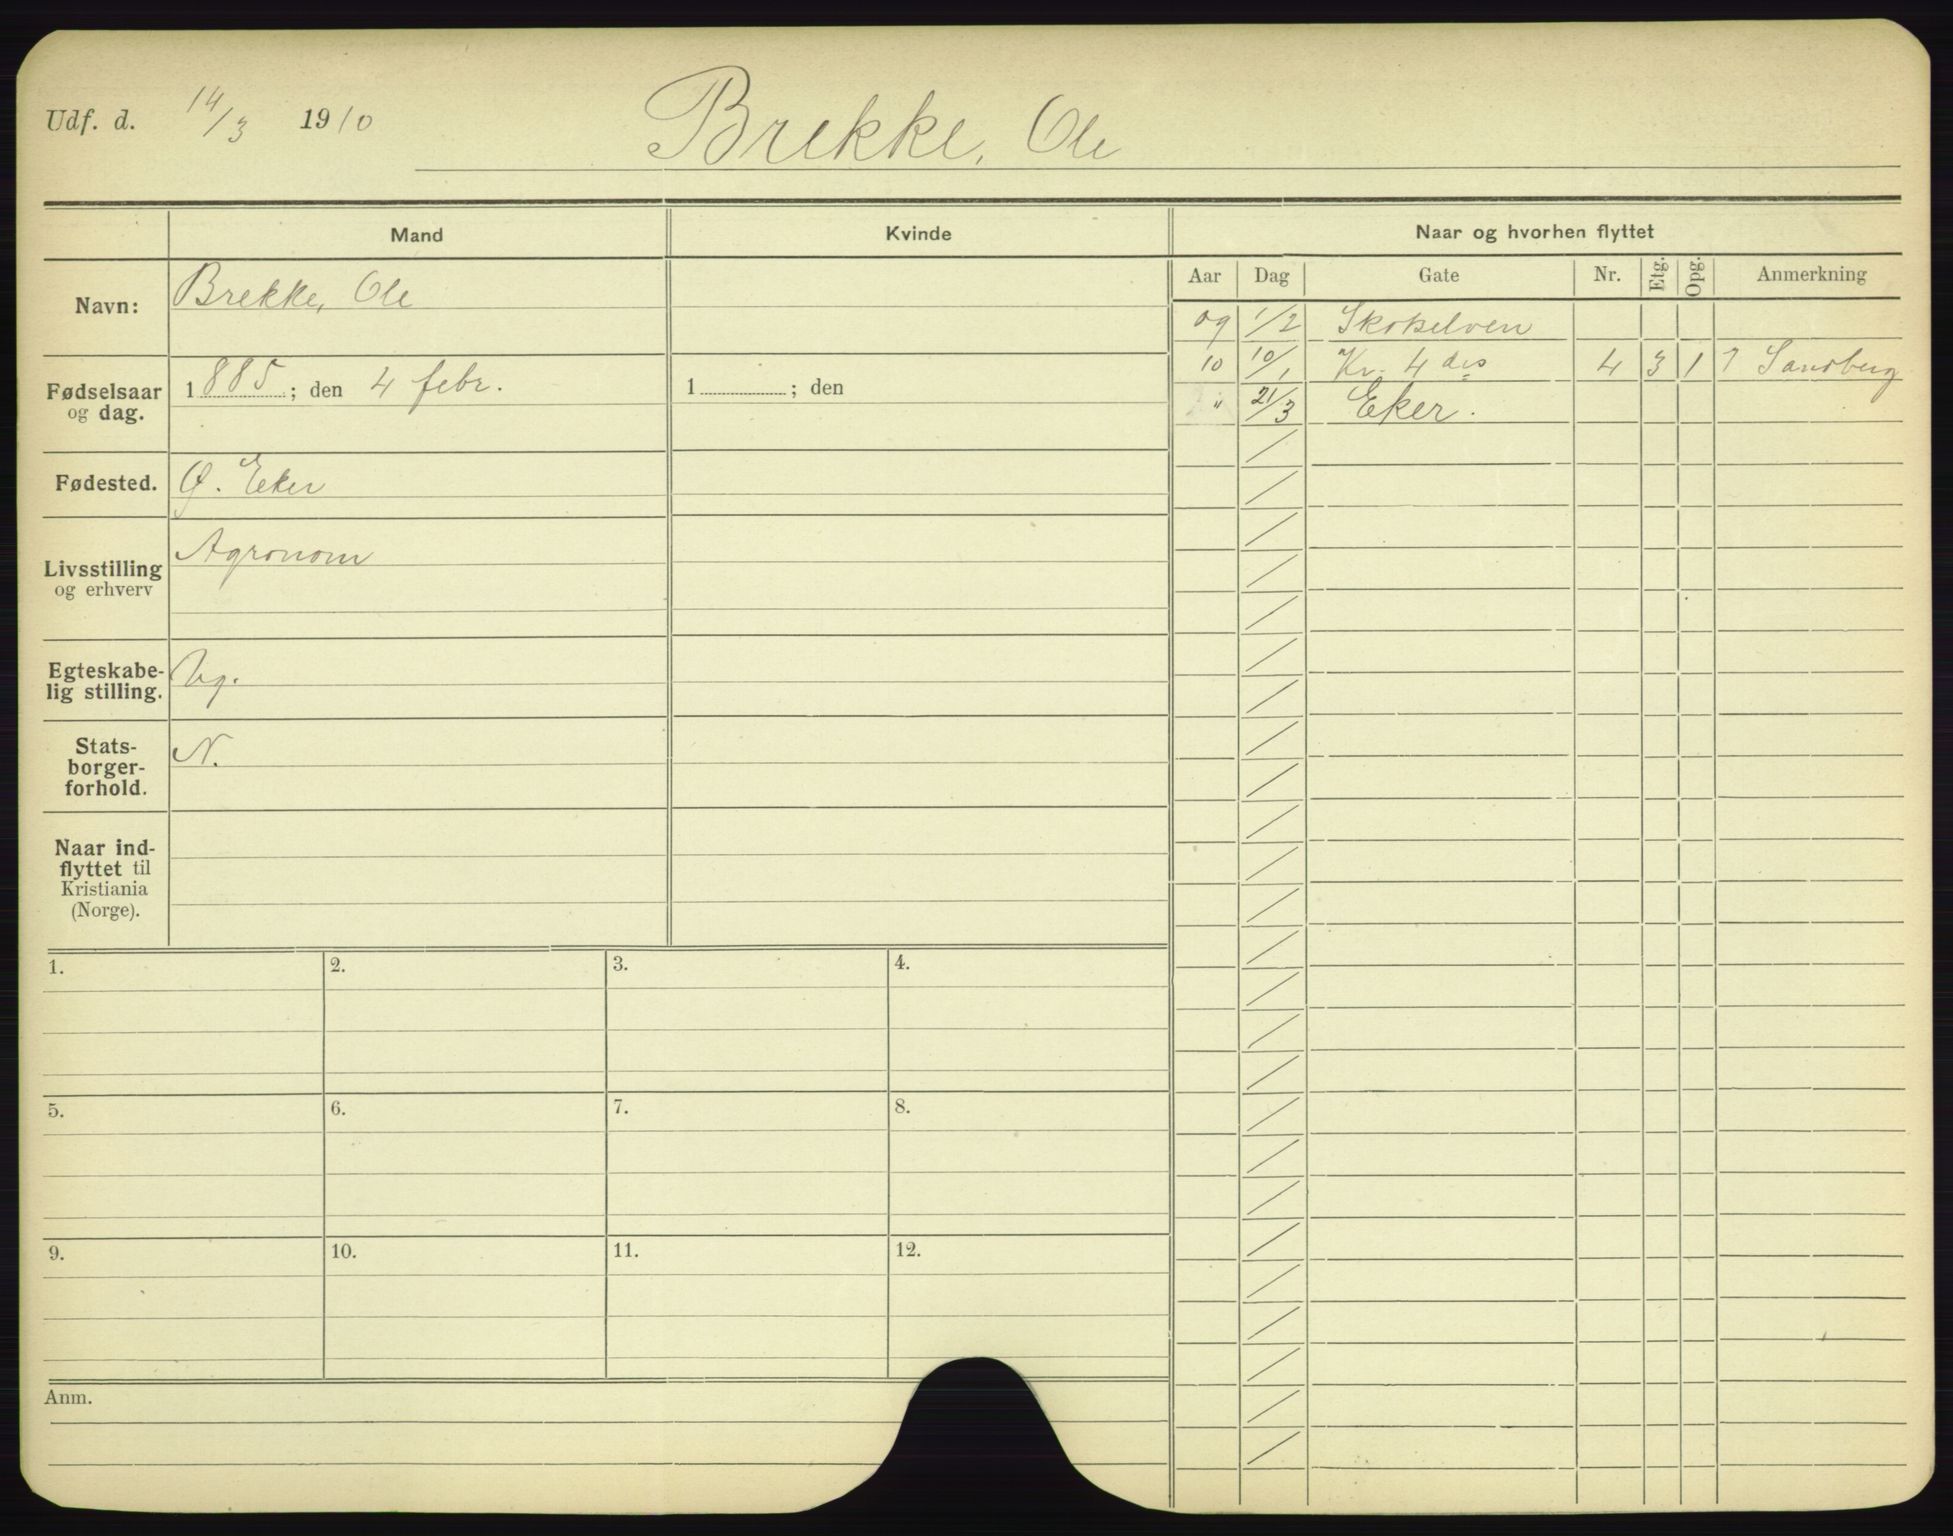 Udf. d. 14/3 1910 Brekke, Ole
Mand Kvinde Naar og hvorhen flyttet
Aar Dag Gate Nr. Etg. Opg. Anmerkning
Navn: Brekke, Ole
09 1/2 Skotselven
10 10/1 Kr. 4 des 4 3 1 Sandberg
" 21/3 Eker.
Fødselsaar
og dag.
1885; den 4 febr. 1 ; den
Fødested. Ø. Eker
Livsstilling
og erhverv
Agronom
Egteskabe-
lig stilling.
Ug.
Stats-
borger-
forhold.
N.
Naar ind-
flyttet til
Kristiania
(Norge).
1. 2. 3. 4.
5. 6. 7. 8.
9. 10. 11. 12.
Anm.